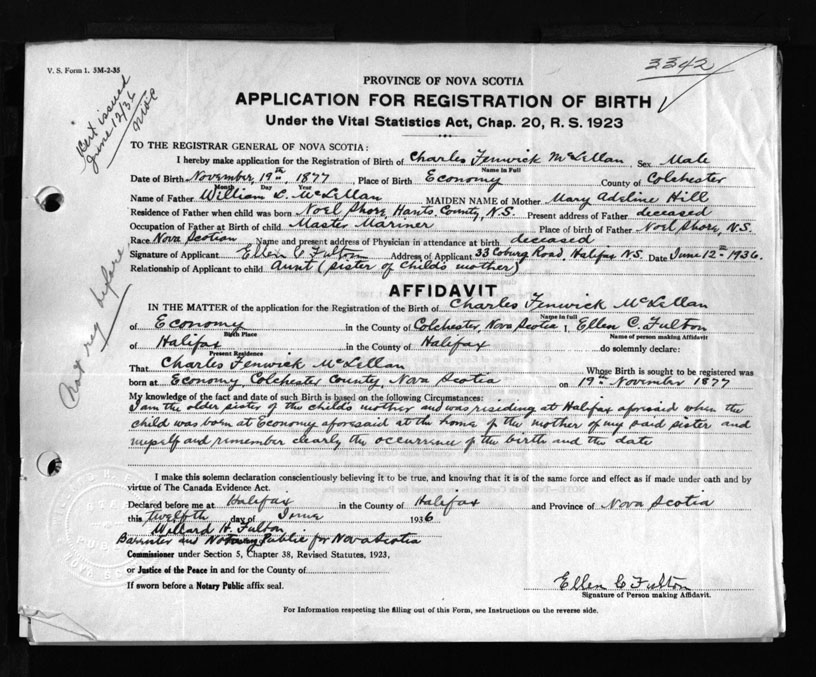 V. S. Form 1. 5M-2-35
3342
Cert issued
June 12/36
PROVINCE OF NOVA SCOTIA
APPLICATION FOR REGISTRATION OF BIRTH
Under the Vital Statistics Act, Chap. 20, R. S. 1923
TO THE REGISTRAR GENERAL OF NOVA SCOTIA:
I hereby make application for the Registration of Birth of Charles Fenwick McLellan Sex Male
Name in Full
Date of Birth November 19th 1877 Place of Birth Economy County of Colchester
Month Day Year
Name of Father William D. McLellan MAIDEN NAME of Mother Mary Adeline Hill
Residence of Father when child was born Noel Shore, Hants County, N.S. Present address of Father deceased
Occupation of Father at Birth of child Master Mariner Place of birth of Father Noel Shore, N.S.
Race Nova Scotian Name and present address of Physician in attendance at birth deceased
Signature of Applicant Ellen C Fulton Address of Applicant 33 Coburg Road, Halifax N.S. Date June 12th 1936.
Relationship of Applicant to child Aunt (sister of child's mother)
Not reg before
AFFIDAVIT
IN THE MATTER of the application for the Registration of the Birth of Charles Fenwick McLellan
Name in full
of Economy in the County of Colchester, Nova Scotia I, Ellen C. Fulton
Birth Place Name of person making Affidavit
of Halifax in the County of Halifax do solemnly declare:
Present Residence
That Charles Fenwick McLellan Whose Birth is sought to be registered was
born at Economy, Colchester County, Nova Scotia on 19th November 1877
My knowledge of the fact and date of such Birth is based on the following Circumstances:
I am the older sister of the child's mother and was residing at Halifax aforesaid when the
child was born at Economy aforesaid at the home of the mother of my said sister and
myself and remember clearly the occurrence of the birth and the date
I make this solemn declaration conscientiously believing it to be true, and knowing that it is of the same force and effect as if made under oath and by
virtue of The Canada Evidence Act.
Declared before me at Halifax in the County of Halifax and Province of Nova Scotia
this twelfth day of June 1936
Willard H. Fulton
Barrister and Notary Public for Nova Scotia
Commissioner under Section 5, Chapter 38, Revised Statutes, 1923,
or Justice of the Peace in and for the County of
If sworn before a Notary Public affix seal.
Ellen C Fulton
Signature of Person making Affidavit.
For Information respecting the filling out of this Form, see Instructions on the reverse side.